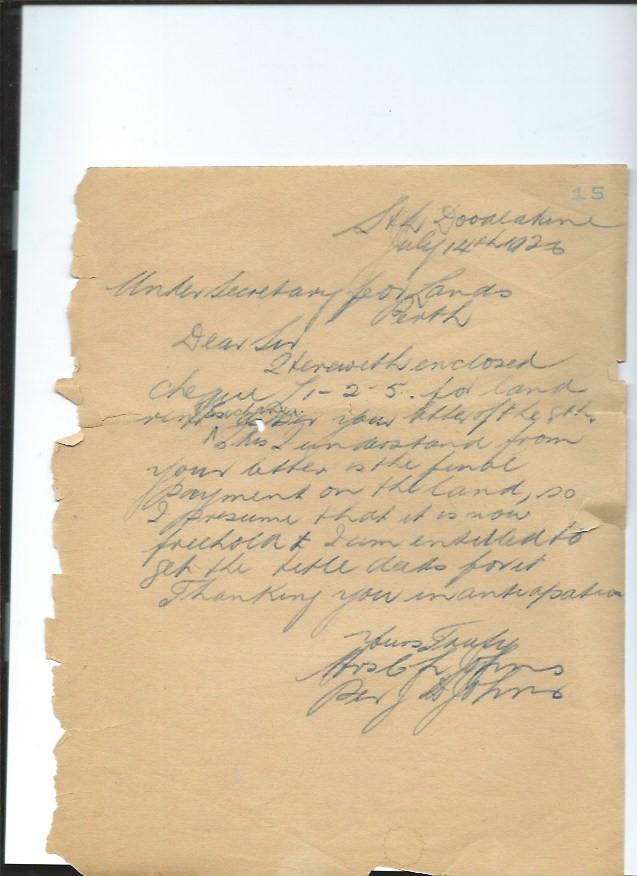 15
Doodlakine
July 14th 1926
Under Secretary for Lands
Perth
Dear Sir
Herewith enclosed
cheque £1-2-5. for land
rent as per your letter of the 8th.
This I understand from
your letter is the final
payment on the land, so
I presume that it is now
freehold & I am entitled to
get the title deeds for it
Thanking you in anticipation
Yours Truly
Mrs C L Johns
Per J D Johns